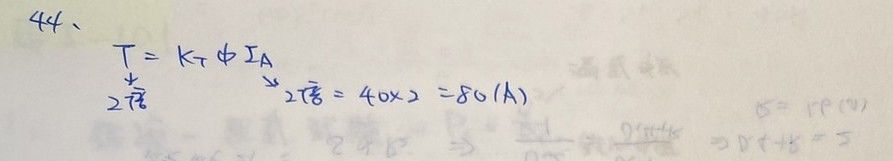 44、
T = K_T φ I_A
↓ ↘
2倍 2倍 = 40×2 = 80(A)